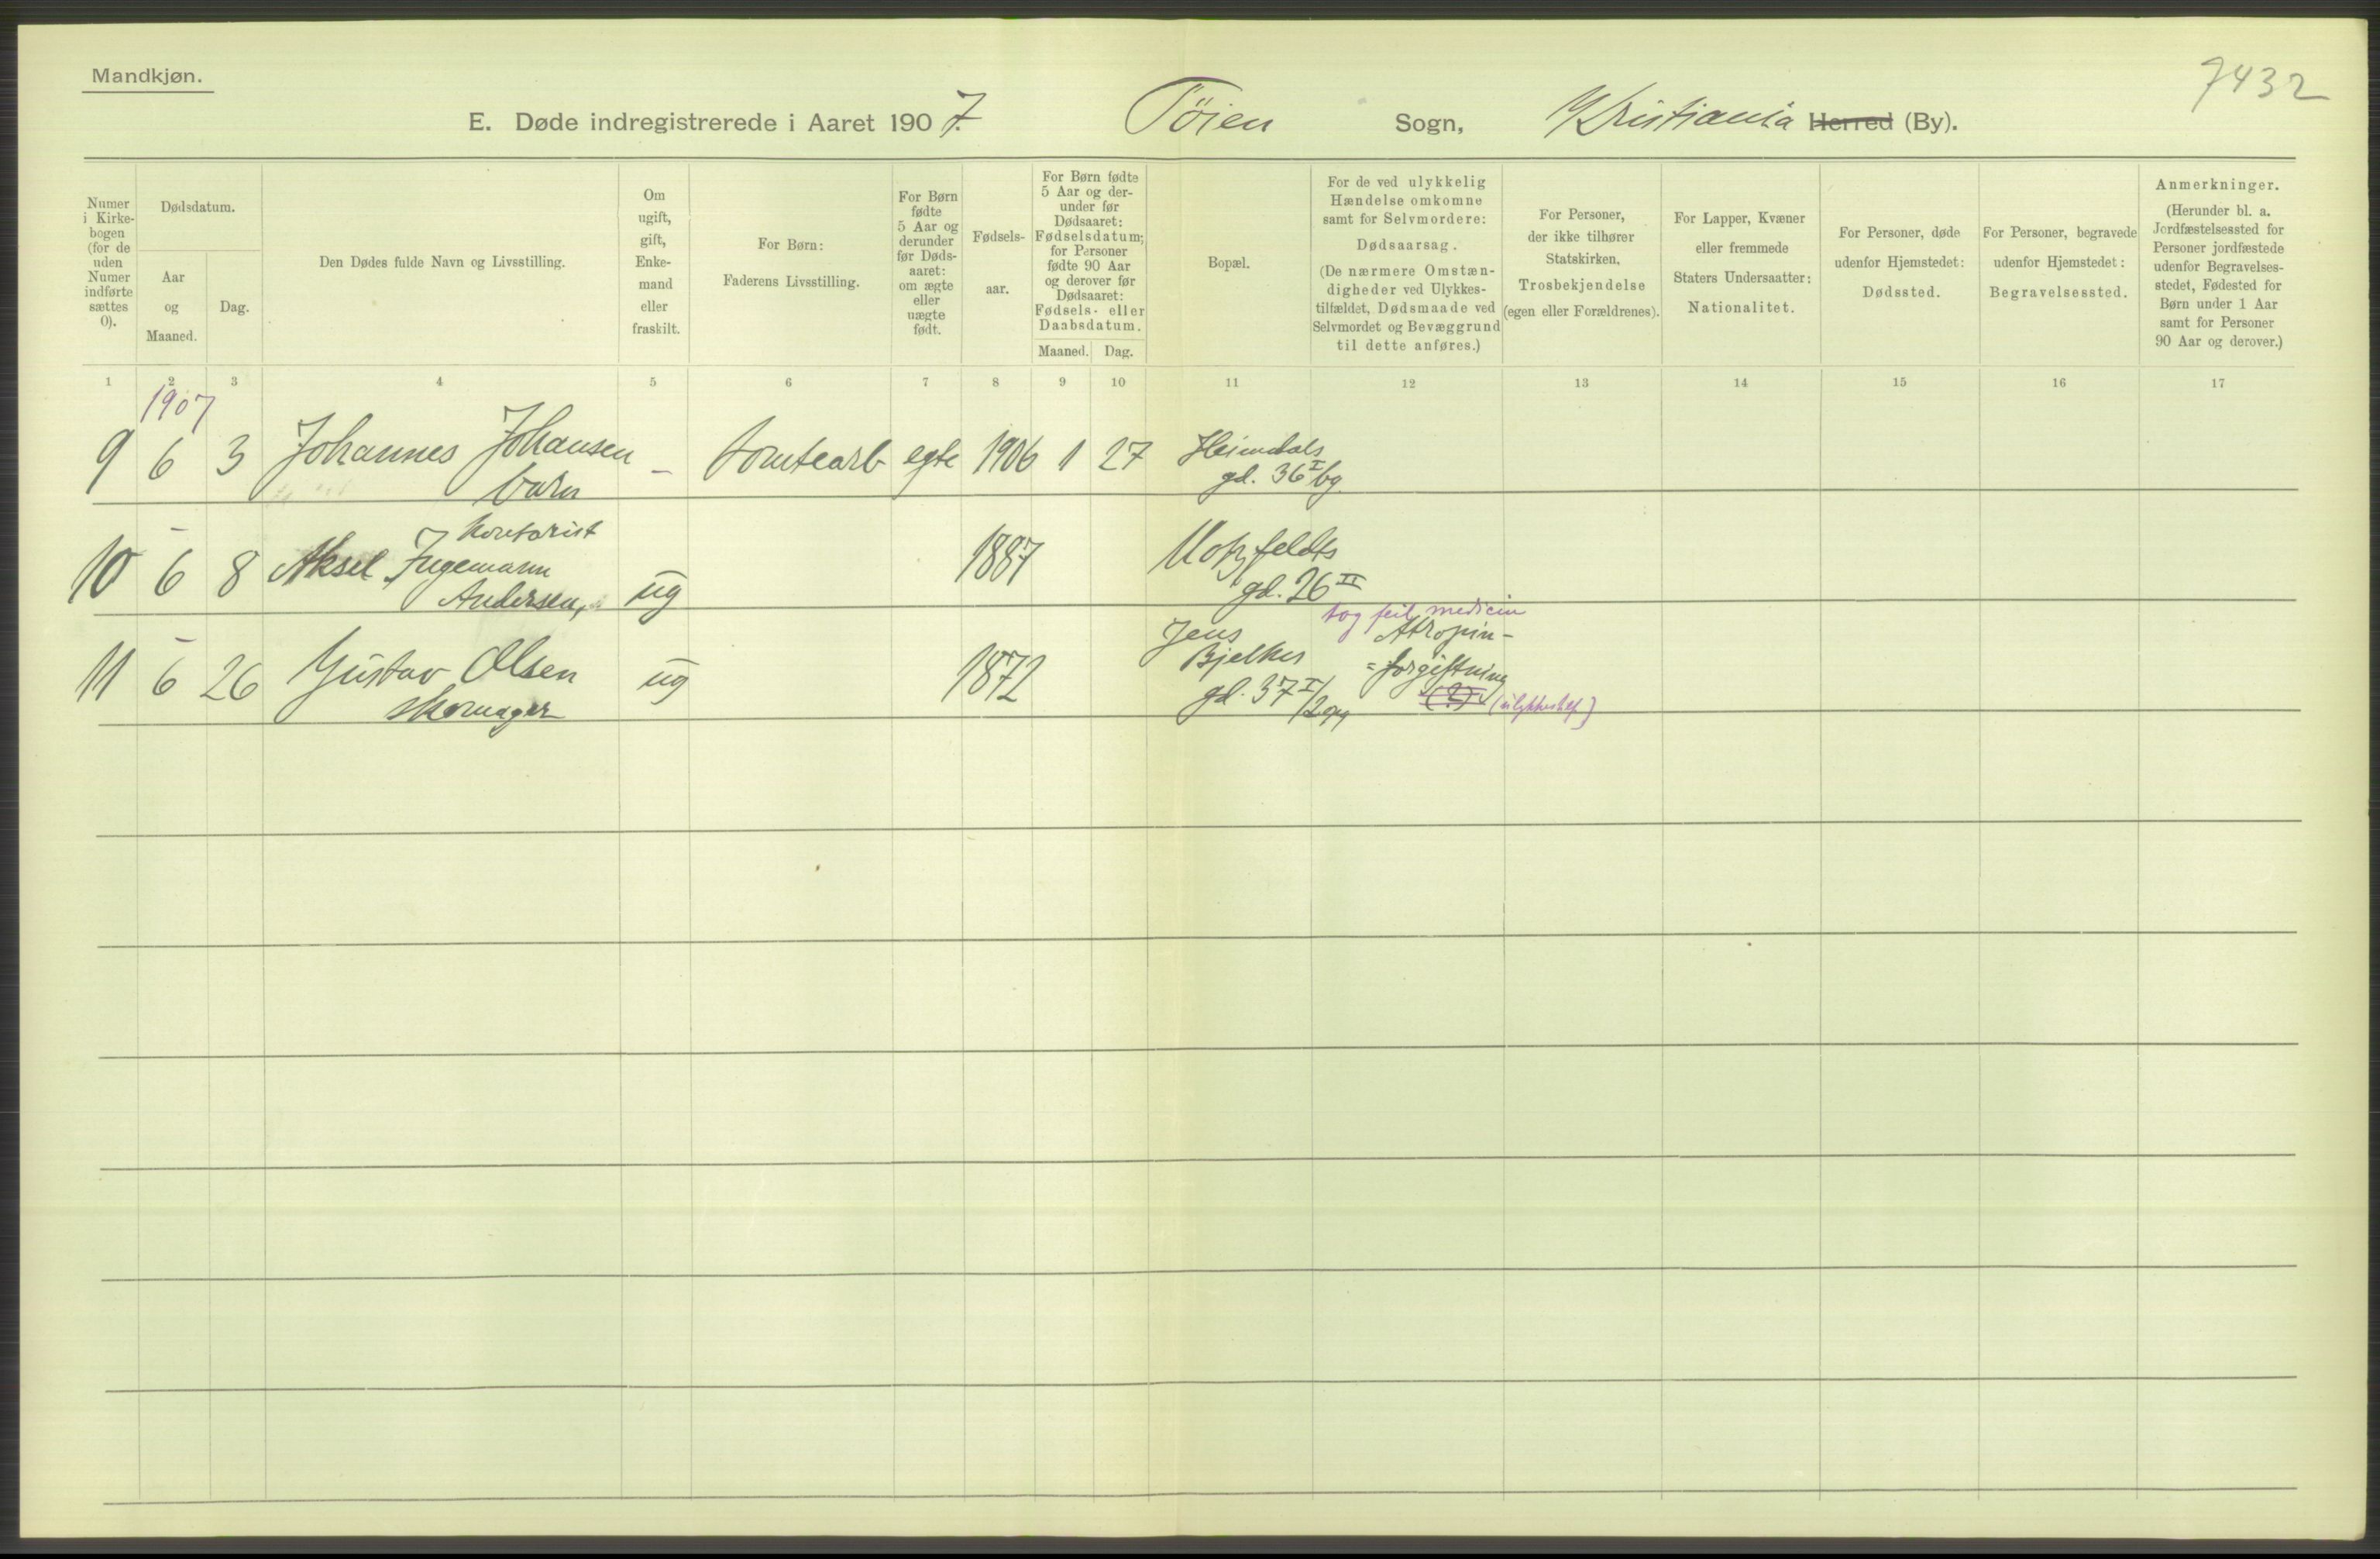 Mandkjøn.
7432
E. Døde indregistrerede i Aaret 1907. Töien Sogn, Kristiania Herred (By).
Numer i Kirkebogen (for de uden Numer indførte sættes 0).
Dødsdatum.
Aar og Maaned.
Dag.
Den Dødes fulde Navn og Livsstilling.
Om ugift, gift, Enkemand eller fraskilt.
For Børn: Faderens Livsstilling.
For Børn fødte 5 Aar og derunder før Dødsaaret: om ægte eller uægte født.
Fødselsaar.
For Børn fødte 5 Aar og derunder før Dødsaaret: Fødselsdatum; for Personer fødte 90 Aar og derover før Dødsaaret: Fødsels- eller Daabsdatum.
Maaned. Dag.
Bopæl.
For de ved ulykkelig Hændelse omkomne samt for Selvmordere: Dødsaarsag.
(De nærmere Omstændigheder ved Ulykkestilfældet, Dødsmaade ved Selvmordet og Bevæggrund til dette anføres.)
For Personer, der ikke tilhører Statskirken, Trosbekjendelse (egen eller Forældrenes).
For Lapper, Kvæner eller fremmede Staters Undersaatter: Nationalitet.
For Personer, døde udenfor Hjemstedet: Dødssted.
For Personer, begravede udenfor Hjemstedet: Begravelsessted.
Anmerkninger.
(Herunder bl. a. Jordfæstelsessted for Personer jordfæstede udenfor Begravelsesstedet, Fødested for Børn under 1 Aar samt for Personer 90 Aar og derover.)
1 2 3 4 5 6 7 8 9 10 11 12 13 14 15 16 17
1907
9 6 3 Johannes Johansen – tomtearb egte 1906 1 27 Heimdals
barn gd. 36 I bg
10 6 8 Aksel Ingemann 1887 Motzfeldts
kontorist
Andersen, ug gd. 26 II
tog feil medicin
11 6 26 Gustav Olsen ug 1872 Jens Bjelkes Atropin-
skomager gd. 37 I/2opg =forgiftning
(?) (ulykkestilf)